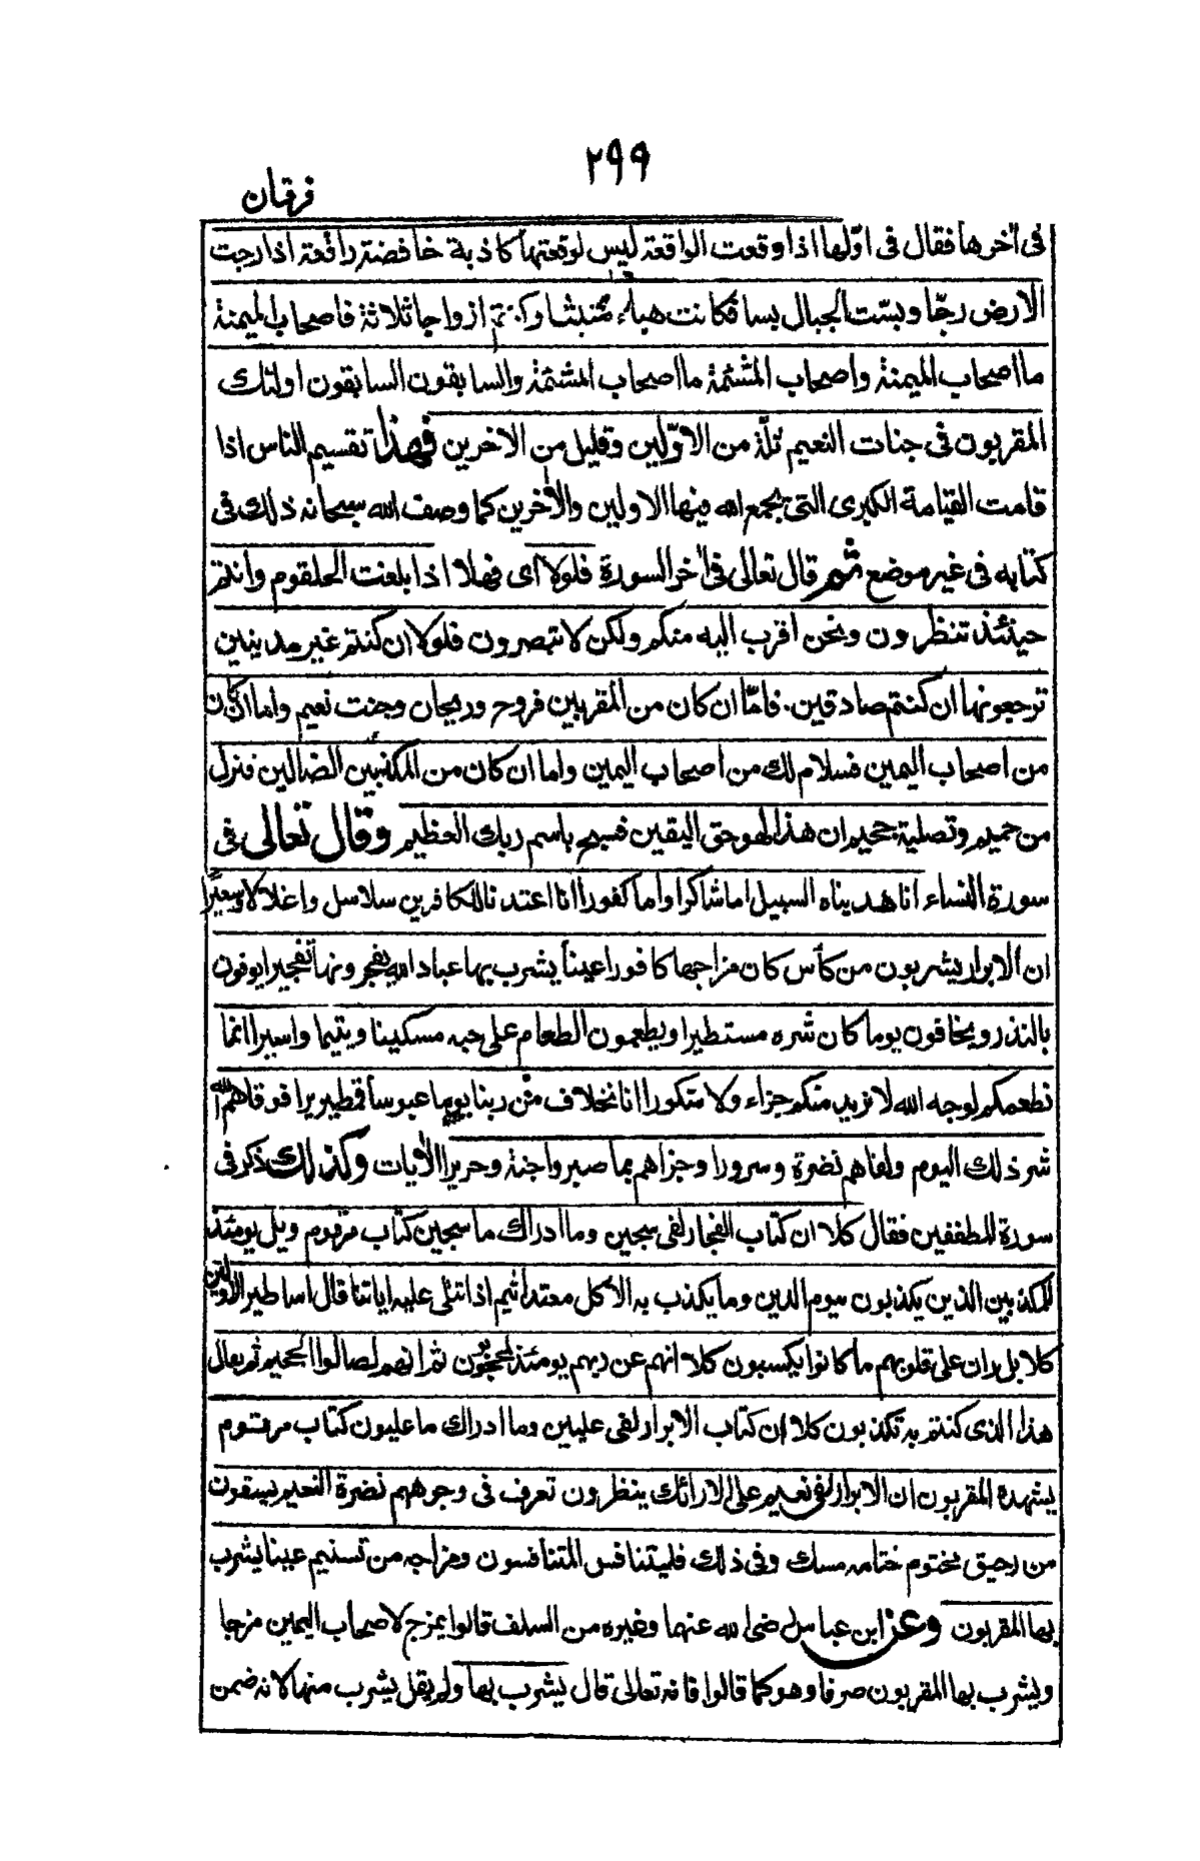 ٢٩٩
فرقان
فى اٰخرها فقال فى اوّلها اذا وقعت الواقعة ليس لوقعتها كاذبة خافضة رافعة اذا رجت
الارض رجّا وبسّت الجبال بسا فكانت هباء منبثا وكنتم ازواجا ثلاثة فاصحاب الميمنة
ما اصحاب الميمنة واصحاب المشئمة ما اصحاب المشئمة والسابقون السابقون اولئك
المقربون فى جنات النعيم ثلّة من الاوّلين وقليل من الاخرين فهذا تقسيم الناس اذا
قامت القيامة الكبرى التى يجمع الله فيها الاولين والاٰخرين كما وصف الله سبحانه ذلك فى
كتابه فى غير موضع ثم قال تعالى فى اٰخر السورة فلولا اى فهلا اذا بلغت الحلقوم وانتم
حينئذ تنظرون ونحن اقرب اليه منكم ولكن لا تبصرون فلولا ان كنتم غير مدينين
ترجعونها ان كنتم صادقين. فامّا ان كان من المقربين فروح وريحان وجنت نعيم واما ان كان
من اصحاب اليمين فسلام لك من اصحاب اليمين واما ان كان من المكذبين الضالين فنزل
من حميم وتصلية جحيم ان هذا لهو حق اليقين فسبح باسم ربك العظيم وقال تعالى فى
سورة النساء انا هديناه السبيل اما شاكرا واما كفورا انا اعتدنا للكافرين سلاسل واغلالا وسعيرًا
ان الابرار يشربون من كأس كان مزاجها كافورا عيناً يشرب بها عباد الله يفجرونها تفجيرا يوفون
بالنذر ويخافون يوما كان شره مستطيرا ويطعمون الطعام على حبه مسكينا ويتيما واسيرا انما
نطعمكم لوجه الله لا نريد منكم جزاء ولا شكورا انا نخاف من ربنا يوما عبوساً قمطريرا فوقاهم الله
شر ذلك اليوم ولقاهم نضرة وسرورا وجزاهم بما صبروا جنة وحريرا الاٰيات وكذلك ذكر فى
سورة المطففين فقال كلا ان كتاب الفجار لفى سجين وما ادراك ما سجين كتاب مرقوم ويل يومئذ
للمكذبين الذين يكذبون بيوم الدين وما يكذب به الا كل معتد اثيم اذا تتلى عليه اياتنا قال اساطير الاولين
كلا بل ران على قلوبهم ما كانوا يكسبون كلا انهم عن ربهم يومئذ لمحجوبون ثم انهم لصالوا الجحيم ثم يقال
هذا الذى كنتم به تكذبون كلا ان كتاب الابرار لفى عليين وما ادراك ما عليون كتاب مرقوم
يشهده المقربون ان الابرار لفى نعيم على الارائك ينظرون تعرف فى وجوههم نضرة النعيم يسقون
من رحيق مختوم ختامه مسك وفى ذلك فليتنافس المتنافسون ومزاجه من تسنيم عينا يشرب
بها المقربون وعن ابن عباس رضى الله عنهما وغيره من السلف قالوا يمزج لاصحاب اليمين مزجا
ويشرب بها المقربون صرفا وهو كما قالوا فانه تعالى قال يشرب بها ولم يقل يشرب منها لانه ضمن